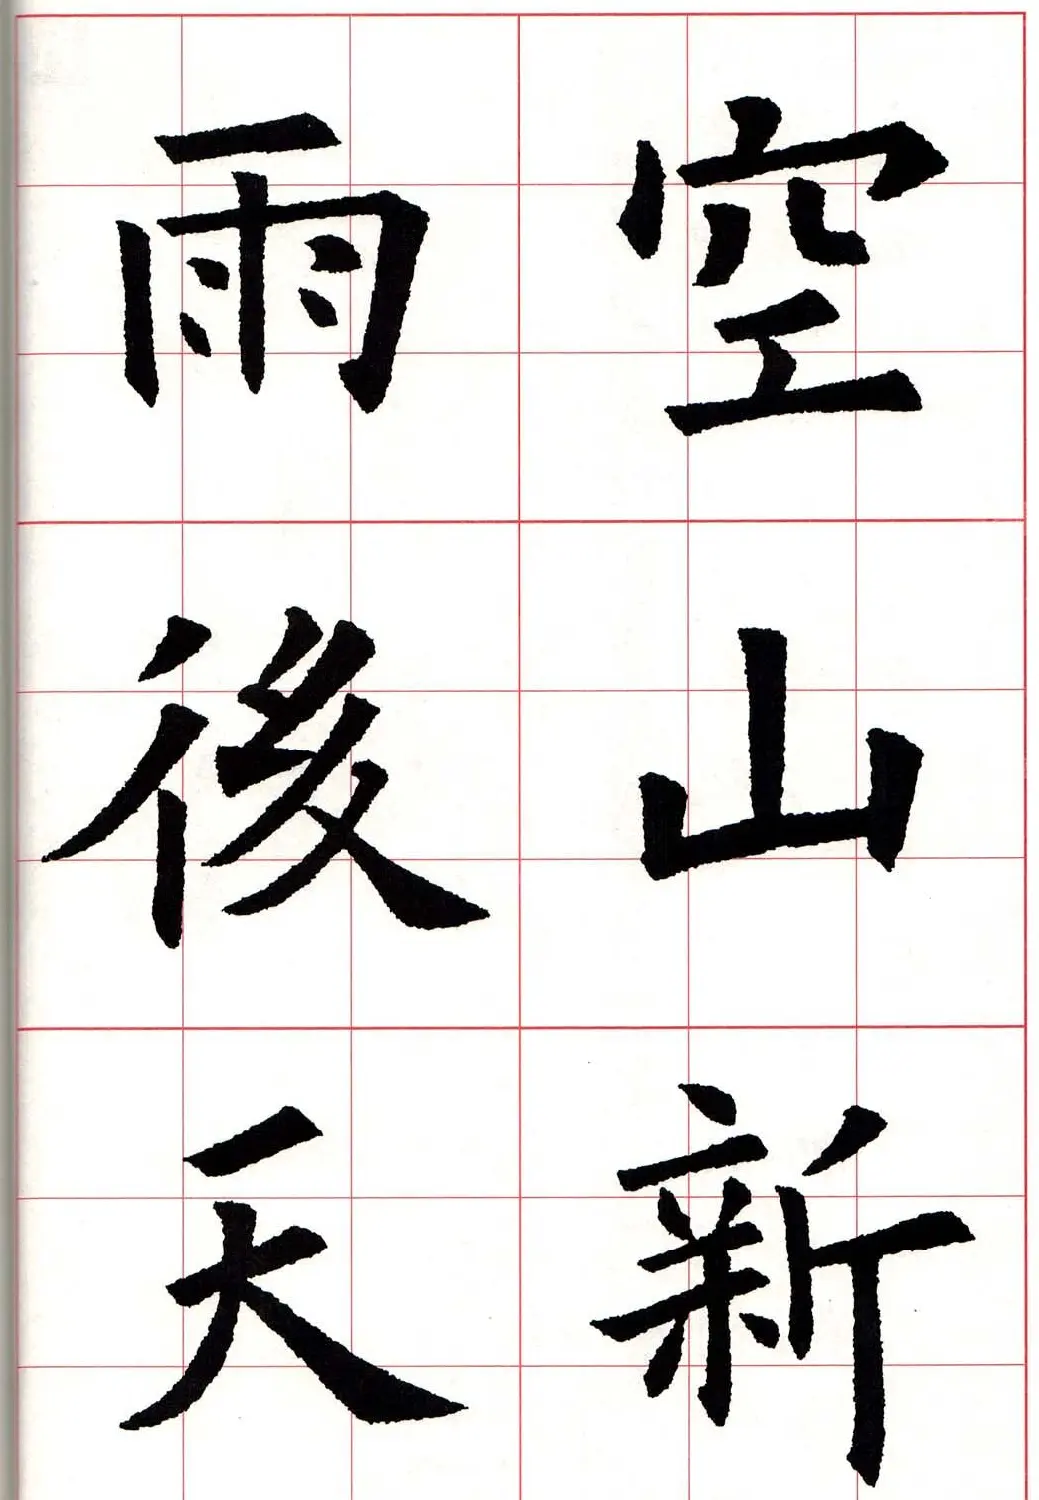 空山新
雨後天